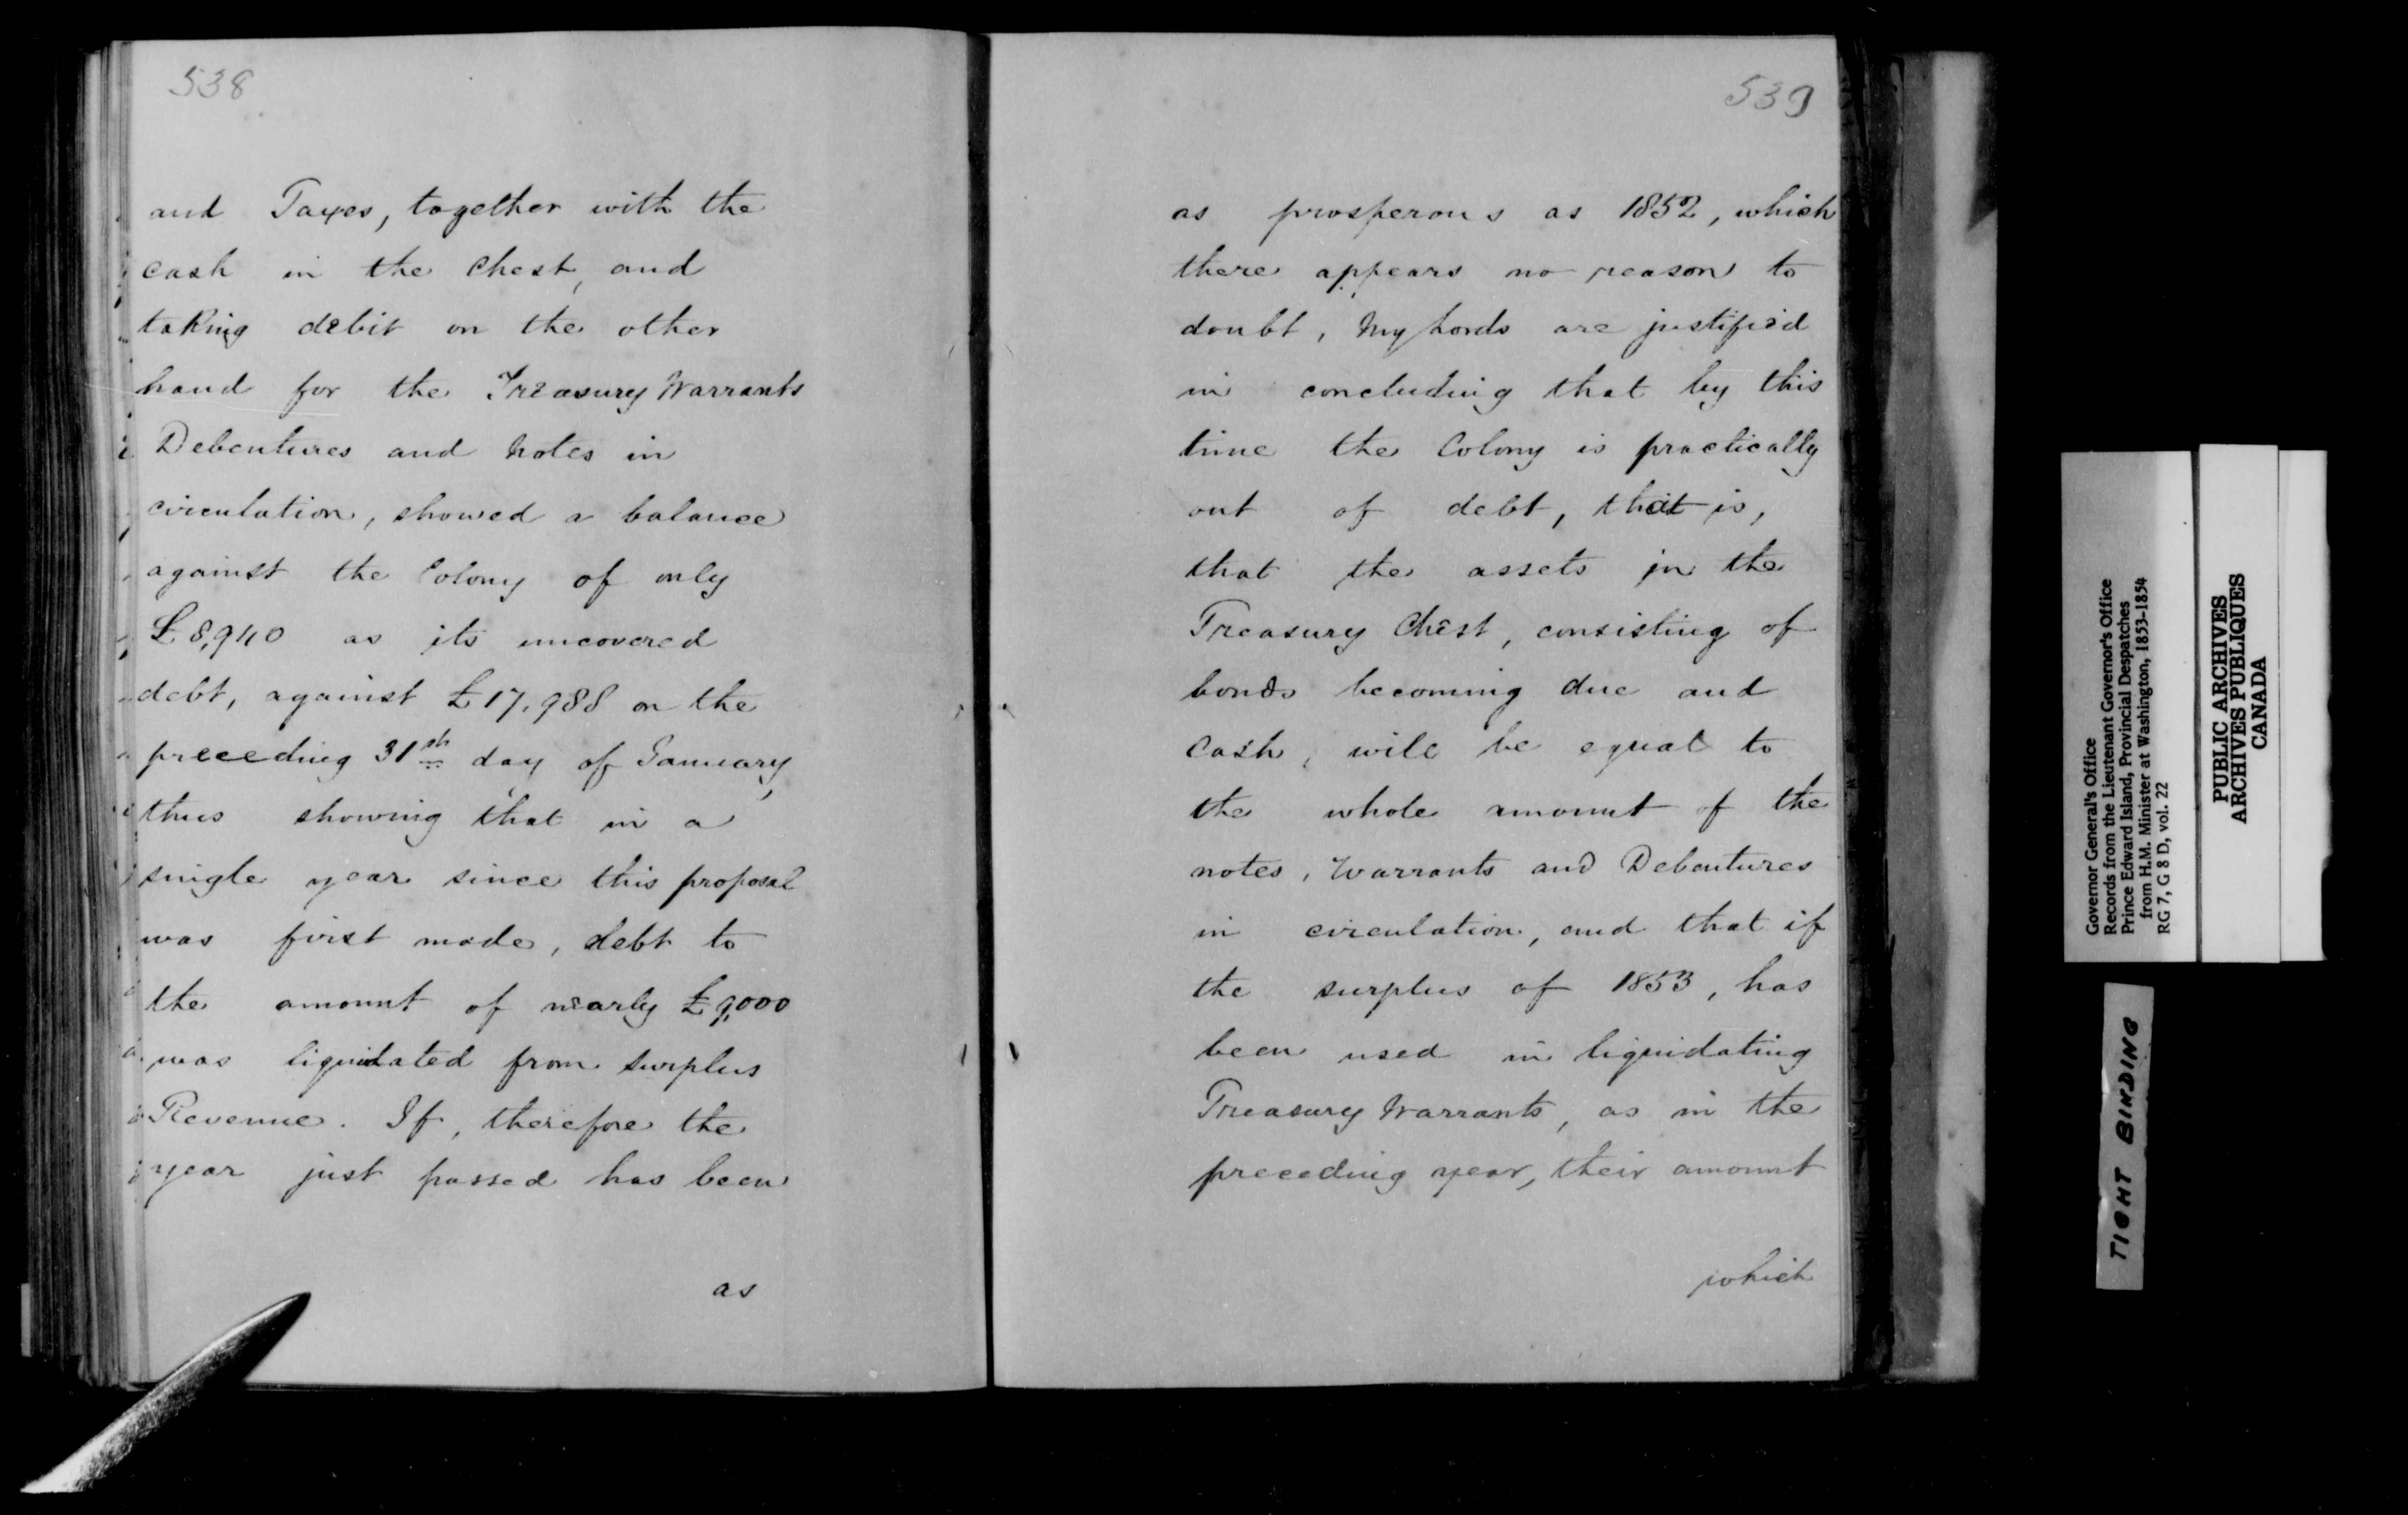 538
and Taxes, together with the
cash in the Chest, and
taking debit on the other
hand for the Treasury Warrants
Debentures and Notes in
circulation, showed a balance
against the Colony of only
£8,940 as its uncovered
debt, against £17,988 on the
preceding 31st day of January,
thus showing that in a
single year since this proposal
was first made, debt to
the amount of nearly £9,000
was liquidated from surplus
Revenue. If, therefore the
year just passed has been
as
539
as prosperous as 1852, which
there appears no reason to
doubt, My Lords are justified
in concluding that by this
time the Colony is practically
out of debt, that is,
that the assets in the
Treasury Chest, consisting of
bonds becoming due and
Cash, will be equal to
the whole amount of the
notes, Warrants and Debentures
in circulation, and that if
the surplus of 1853, has
been used in liquidating
Treasury Warrants, as in the
preceding year, their amount
which
Governor General's Office
Records from the Lieutenant Governor's Office
Prince Edward Island, Provincial Despatches
from H.M. Minister at Washington, 1853-1854
RG 7, G 8 D, vol. 22
PUBLIC ARCHIVES
ARCHIVES PUBLIQUES
CANADA
TIGHT BINDING